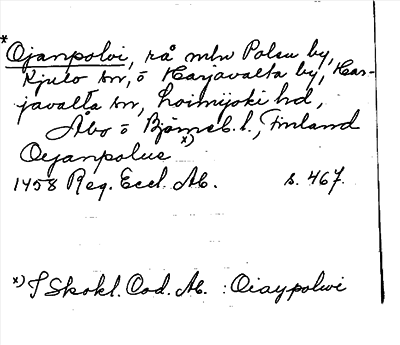 *Ojanpolvi, rå mln Polsu by,
Kjulo sn, o Harjavalta by, Har-
javalta sn, Loimijoki hd,
Åbo o Björneb. l., Finland
Oeyanpolue x)
1458 Reg. Eccl. Ab. s. 467.
x) I Skokl. Cod. Ab. : Oiaypolwi